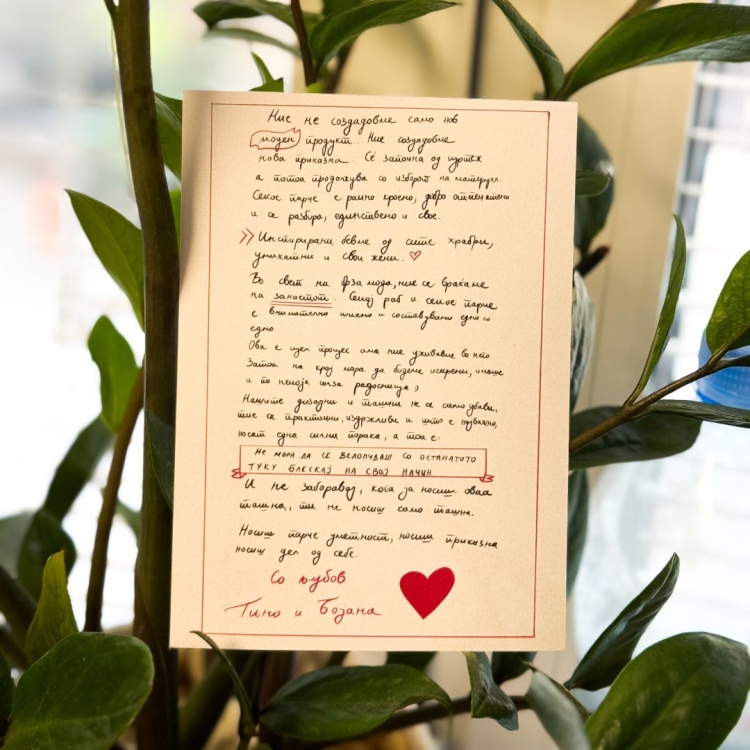 Ние не создадовме само нов
моден продукт. Ние создадовме
нова приказна. Сѐ започна од цртеж
а потоа продолжува со изборот на материјал.
Секое парче е рамно кроено, добро отпечатено
и се разбира, единствено и свое.
Инспирирани бевме од сите храбри,
уникатни и свои жени.
Во свет на брза мода, ние се враќаме
на занаетот. Секој раб и секое парче
е внимателно шиено и составувано едно со
едно.
Ова е цел процес ама ние уживавме во него.
Затоа на крај мора да бидеме искрени, имаше
и по некоја солза радосница :)
Нашите дизајни и ташни не се само убави,
тие се практични, издржливи и што е најважно,
носат една силна порака, а тоа е:
НЕ МОРА ДА СЕ ВКЛОПУВАШ СО ОСТАНАТОТО
ТУКУ БЛЕСКАЈ НА СВОЈ НАЧИН
И не заборавај, кога ја носиш оваа
ташна, ти не носиш само ташна.
Носиш парче уметност, носиш приказна
носиш дел од себе.
Со љубов
Тино и Бозана